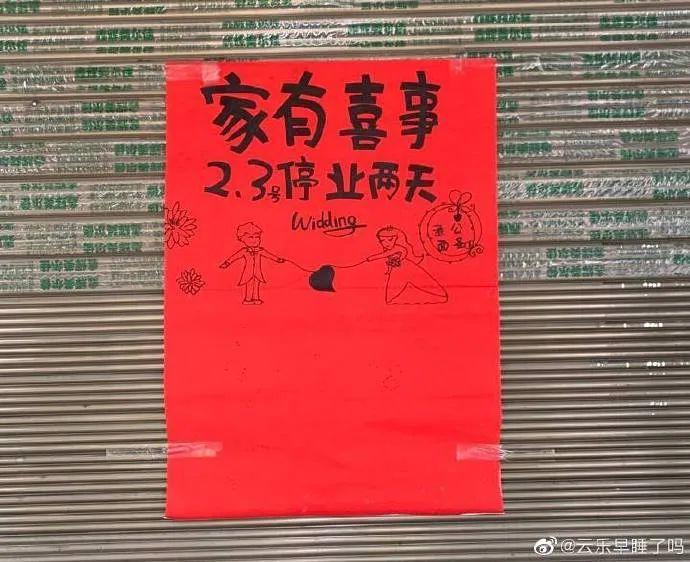 家有喜事
2.3号停业两天
Widding
@云乐早睡了吗